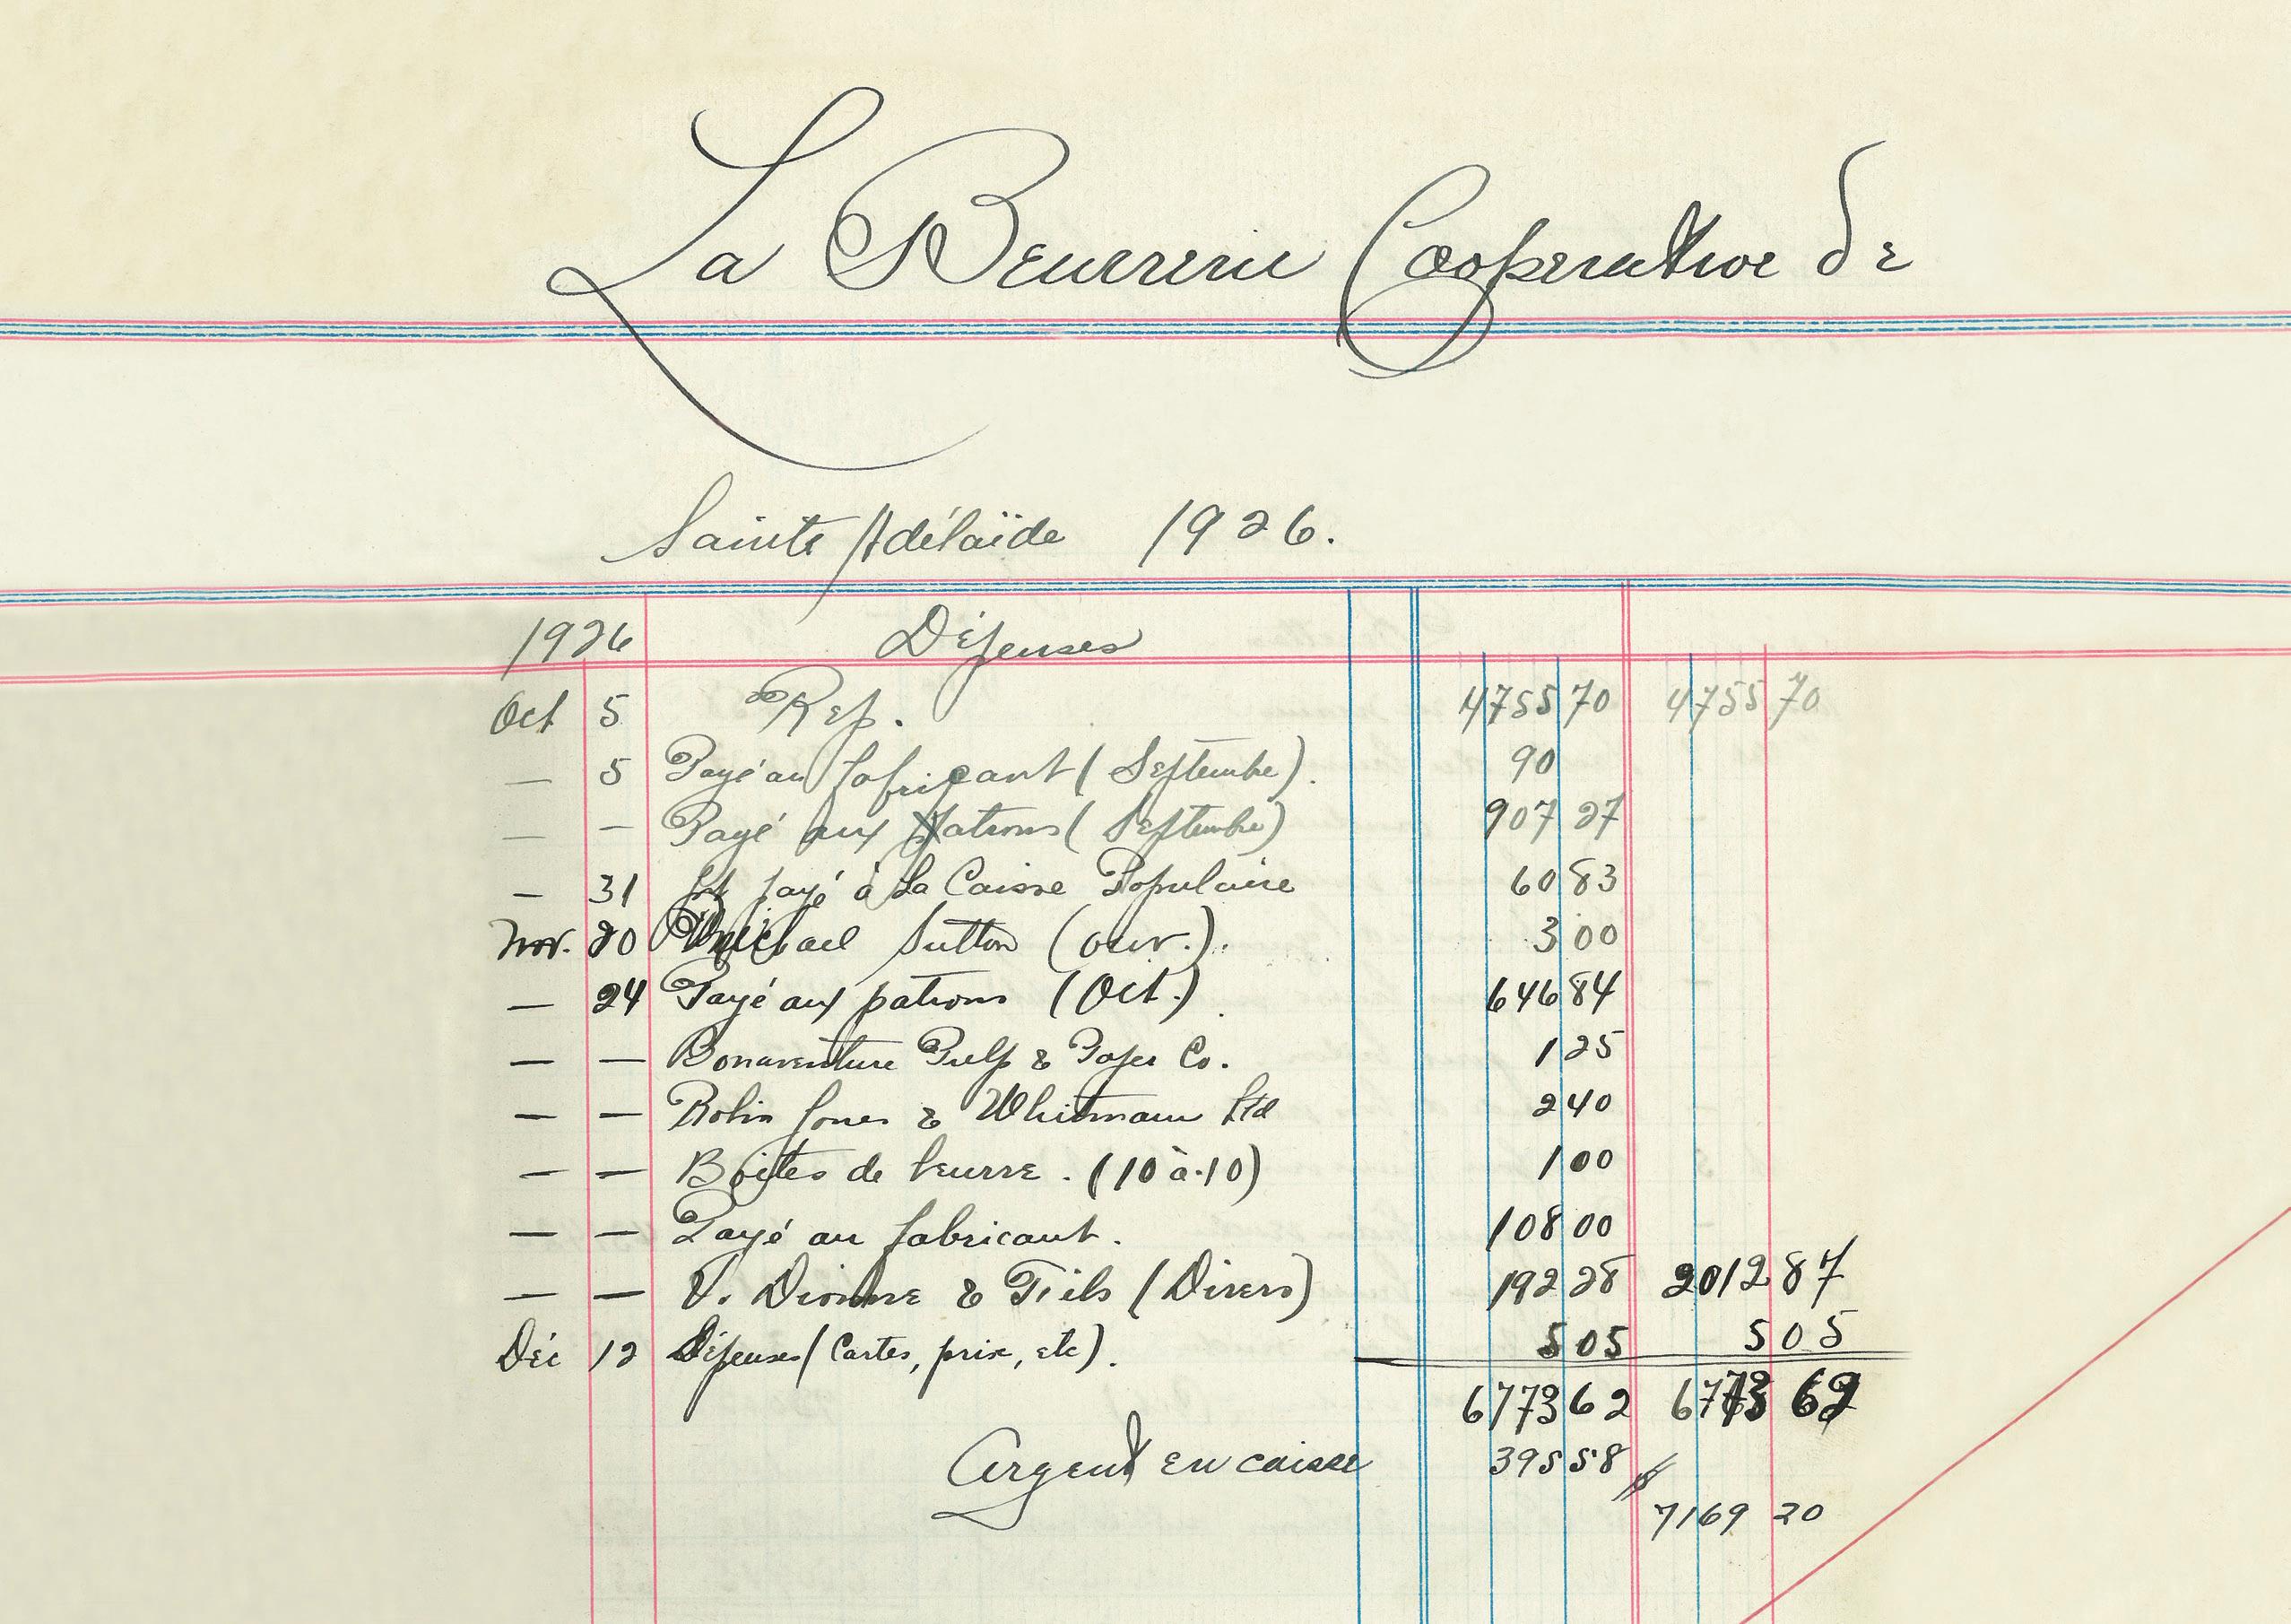 La Beurrerie Cooperative de
Sainte Adélaïde 1926.
1926 Dépenses
Oct 5 Rep. 4755 70 4755 70
— 5 Payé au fabricant (Septembre). 90
— — Payé aux patrons (Septembre) 907 27
— 31 Int payé à La Caisse Populaire 60 83
Nov. 20 Michael Sutton (ouv.). 3 00
— 24 Payé aux patrons (Oct.) 646 84
— — Bonaventure Pulp & Paper Co. 1 25
— — Robin Jones & Whitman Ltd 2 40
— — Boîtes de beurre. (10 à .10) 1 00
— — Payé au fabricant. 108 00
— — V. Dionne & Fils (Divers) 192 28 2012 87
Déc 12 Dépenses (Cartes, prix, etc). 5 05 5 05
6773 62 6773 62
Argent en caisse 395 58
7169 20